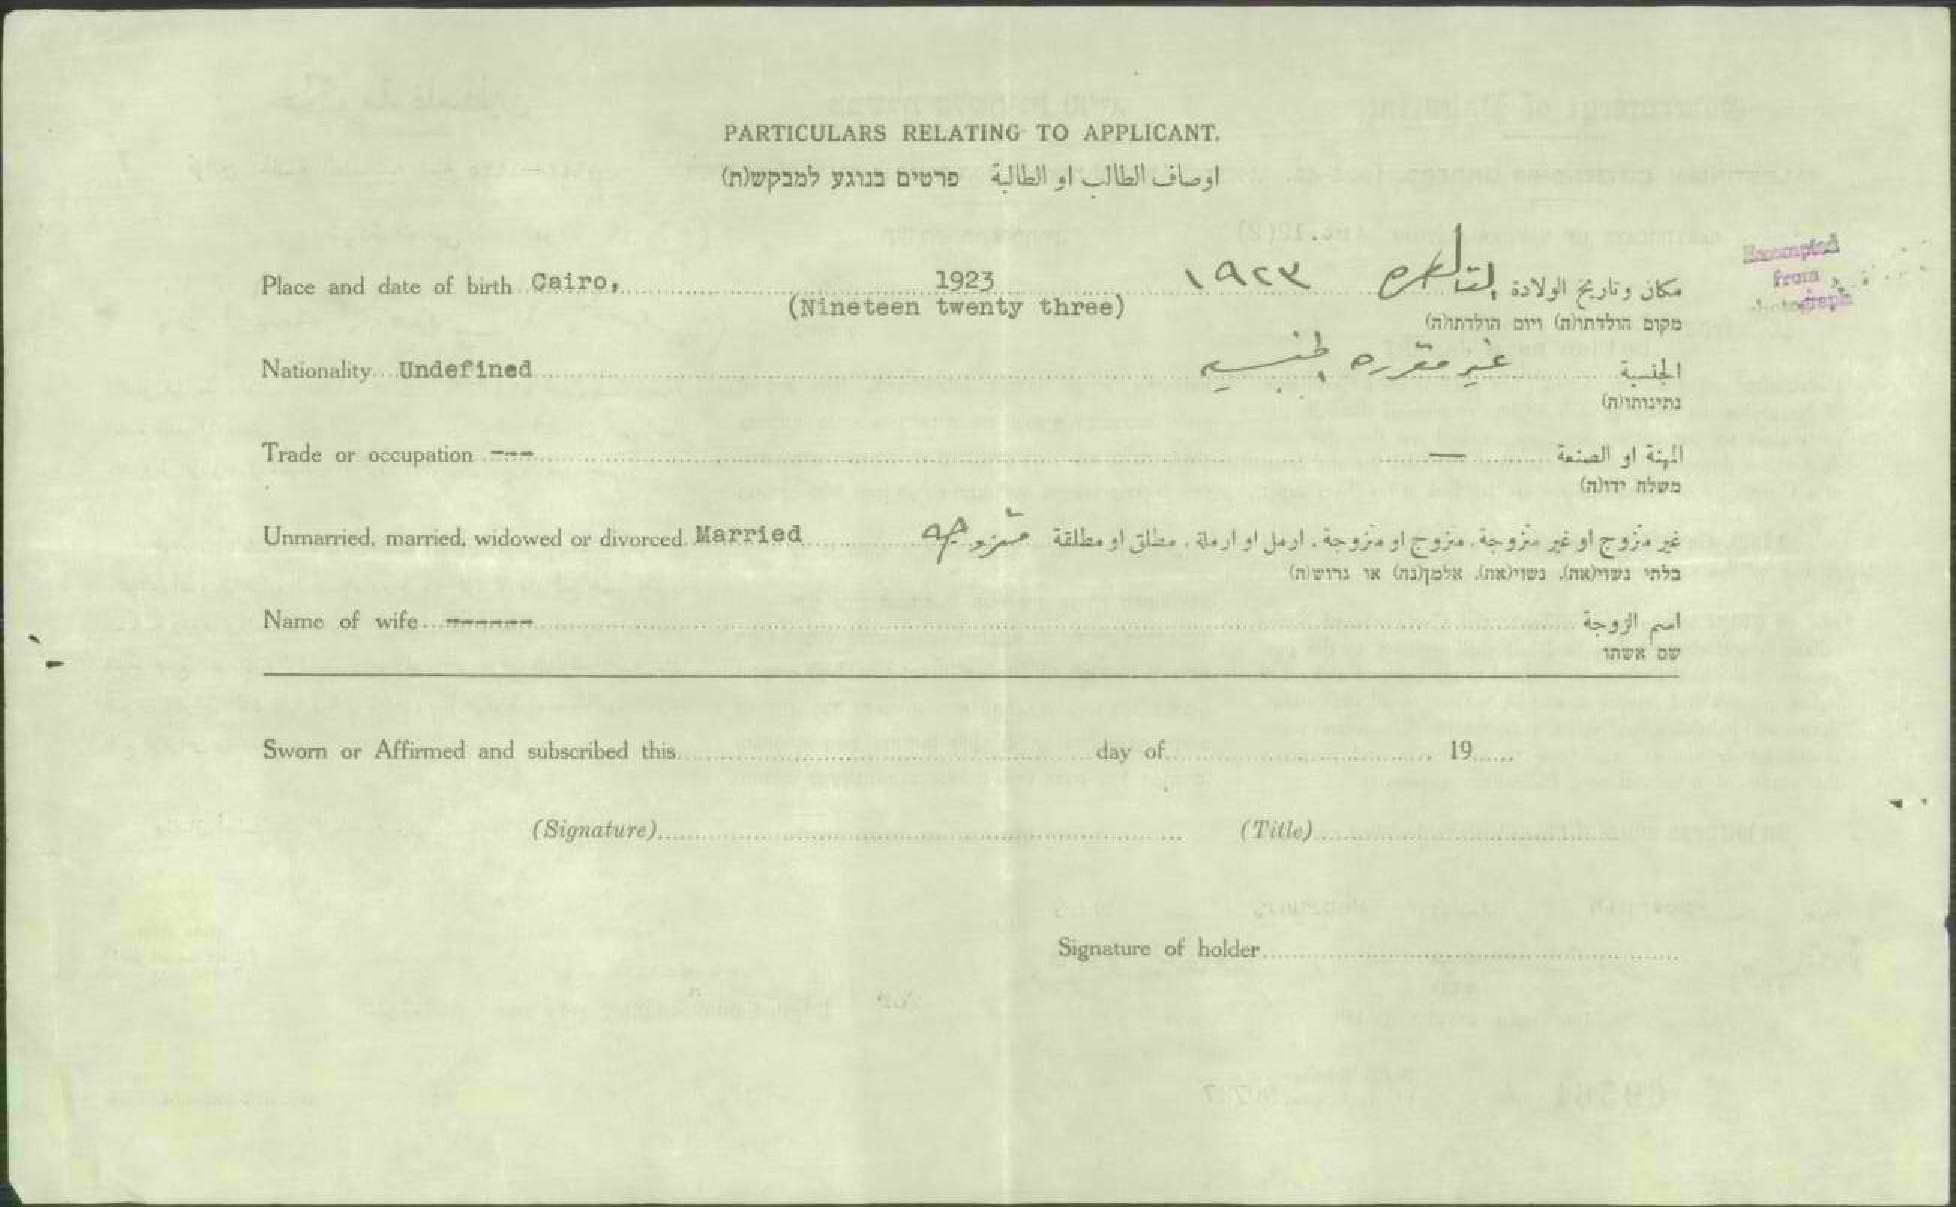 PARTICULARS RELATING TO APPLICANT.
اوصاف الطالب او الطالبة פרטים בנוגע למבקש(ת)
Place and date of birth Cairo, 1923 ١٩٢٣ القاهره مكان وتاريخ الولادة
(Nineteen twenty three)
מקום הולדתו(ה) ויום הולדתו(ה)
Exempted
from
photograph
Nationality Undefined غير مقرره الجنسيه الجنسية
נתינותו(ה)
Trade or occupation --- — المهنة او الصنعة
משלח ידו(ה)
Unmarried, married, widowed or divorced Married متزوجه غير متزوج او غير متزوجة، متزوج او متزوجة، ارمل او ارملة، مطلق او مطلقة
בלתי נשוי(אה), נשוי(אה), אלמן(נה) או גרוש(ה)
Name of wife ------ اسم الزوجة
שם אשתו
Sworn or Affirmed and subscribed this day of 19
(Signature) (Title)
Signature of holder